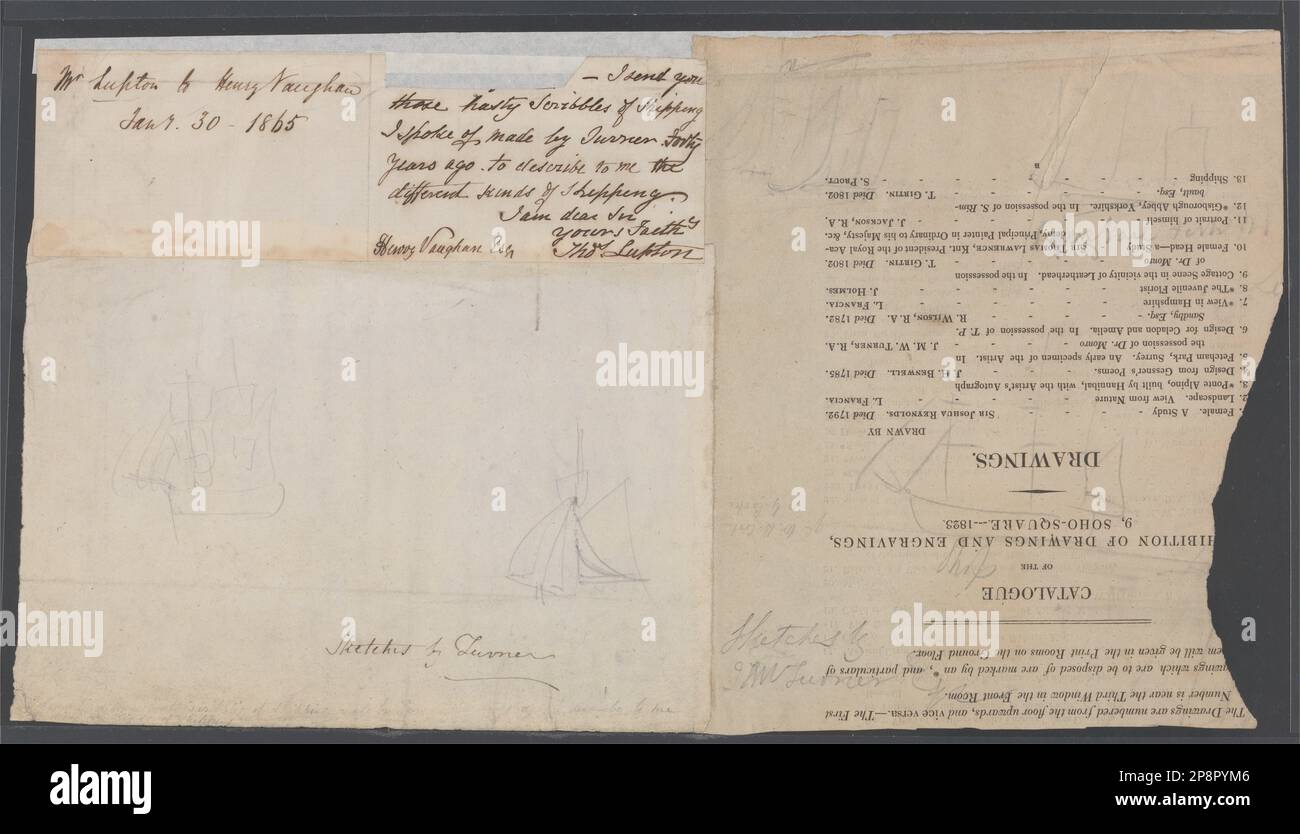 Mr Lupton to Henry Vaughan
Jany. 30 - 1865
— I send you
those hasty Scribbles of Shipping
I spoke of made by Turner Forty
Years ago. to describe to me the
different kinds of Shipping
I am dear Sir
Yours Faithy
Henry Vaughan Esqr Thos Lupton
Sketches by Turner
describe to me
Sketches by
J M W Turner
Ship
The Drawings are numbered from the floor upwards, and vice versa.—The First
Number is near the Third Window in the Front Room.
which are to be disposed of are marked by an *, and particulars of
will be given in the Print Rooms on the Ground Floor.
CATALOGUE
OF THE
HIBITION OF DRAWINGS AND ENGRAVINGS,
9, SOHO-SQUARE.—1823.
DRAWINGS.
DRAWN BY
1. Female. A Study - - - Sir Joshua Reynolds. Died 1792.
2. Landscape. View from Nature - - - L. Francia.
3. *Ponte Alpino, built by Hannibal, with the Artist's Autograph
4. Design from Gessner's Poems. - - J. H. Benwell. Died 1785.
5. Fetcham Park, Surrey. An early specimen of the Artist. In
the possession of Dr. Monro - - - J. M. W. Turner, R.A.
6. Design for Celadon and Amelia. In the possession of T. P.
Sandby, Esq. - - - R. Wilson, R.A. Died 1782.
7. *View in Hampshire - - - L. Francia.
8. *The Juvenile Florist - - - J. Holmes.
9. Cottage Scene in the vicinity of Leatherhead. In the possession
of Dr. Monro - - - T. Girtin. Died 1802.
10. Female Head—a Study - Sir Thomas Lawrence, Knt. President of the Royal Aca-
demy, Principal Painter in Ordinary to his Majesty, &c.
11. Portrait of himself - - - J. Jackson, R.A.
12. *Gisborough Abbey, Yorkshire. In the possession of S. Rim-
bault, Esq. - - - T. Girtin. Died 1802.
13. Shipping - - - S. Prout.
B
alamy
alamy
Image ID: 2P8PYM6
www.alamy.com